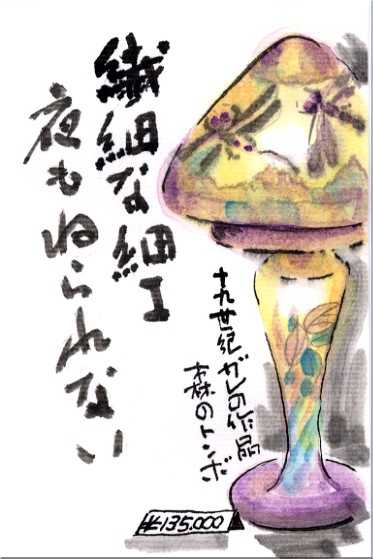 繊細な細工
夜もねられない
十九世紀ガレの作品
森のトンボ
¥135.000